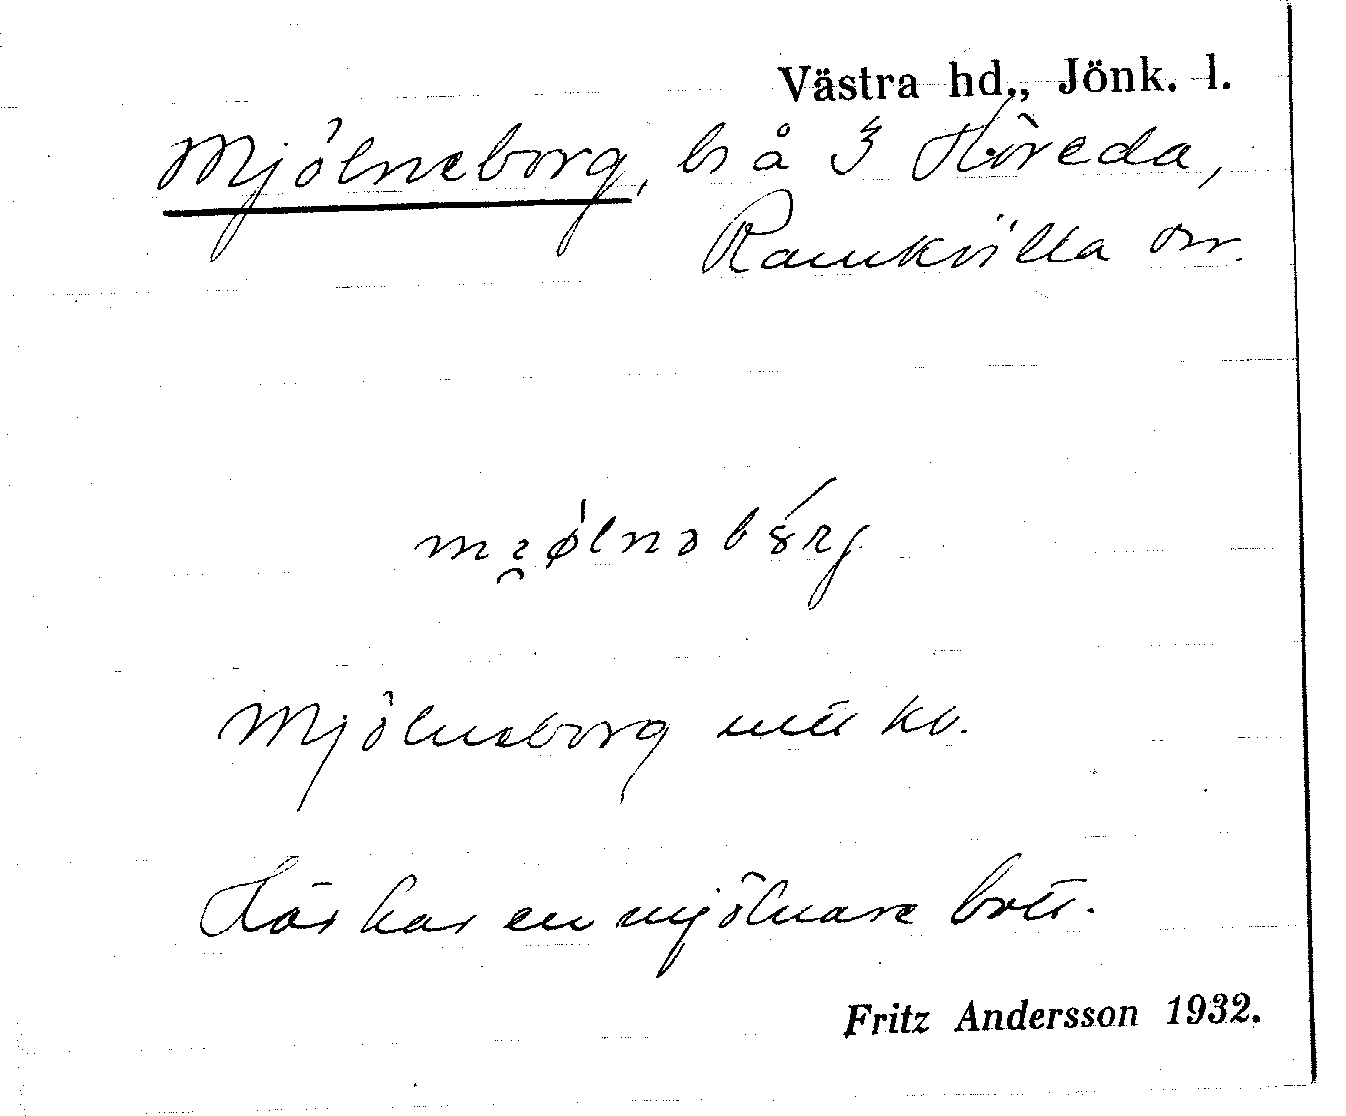 Västra hd., Jönk. l.
Mjölneborg, ls å 3 Höreda,
Ramkvilla sn.
Mjölneborg utt kv.
Här har en mjölnare bott.
Fritz Andersson 1932.